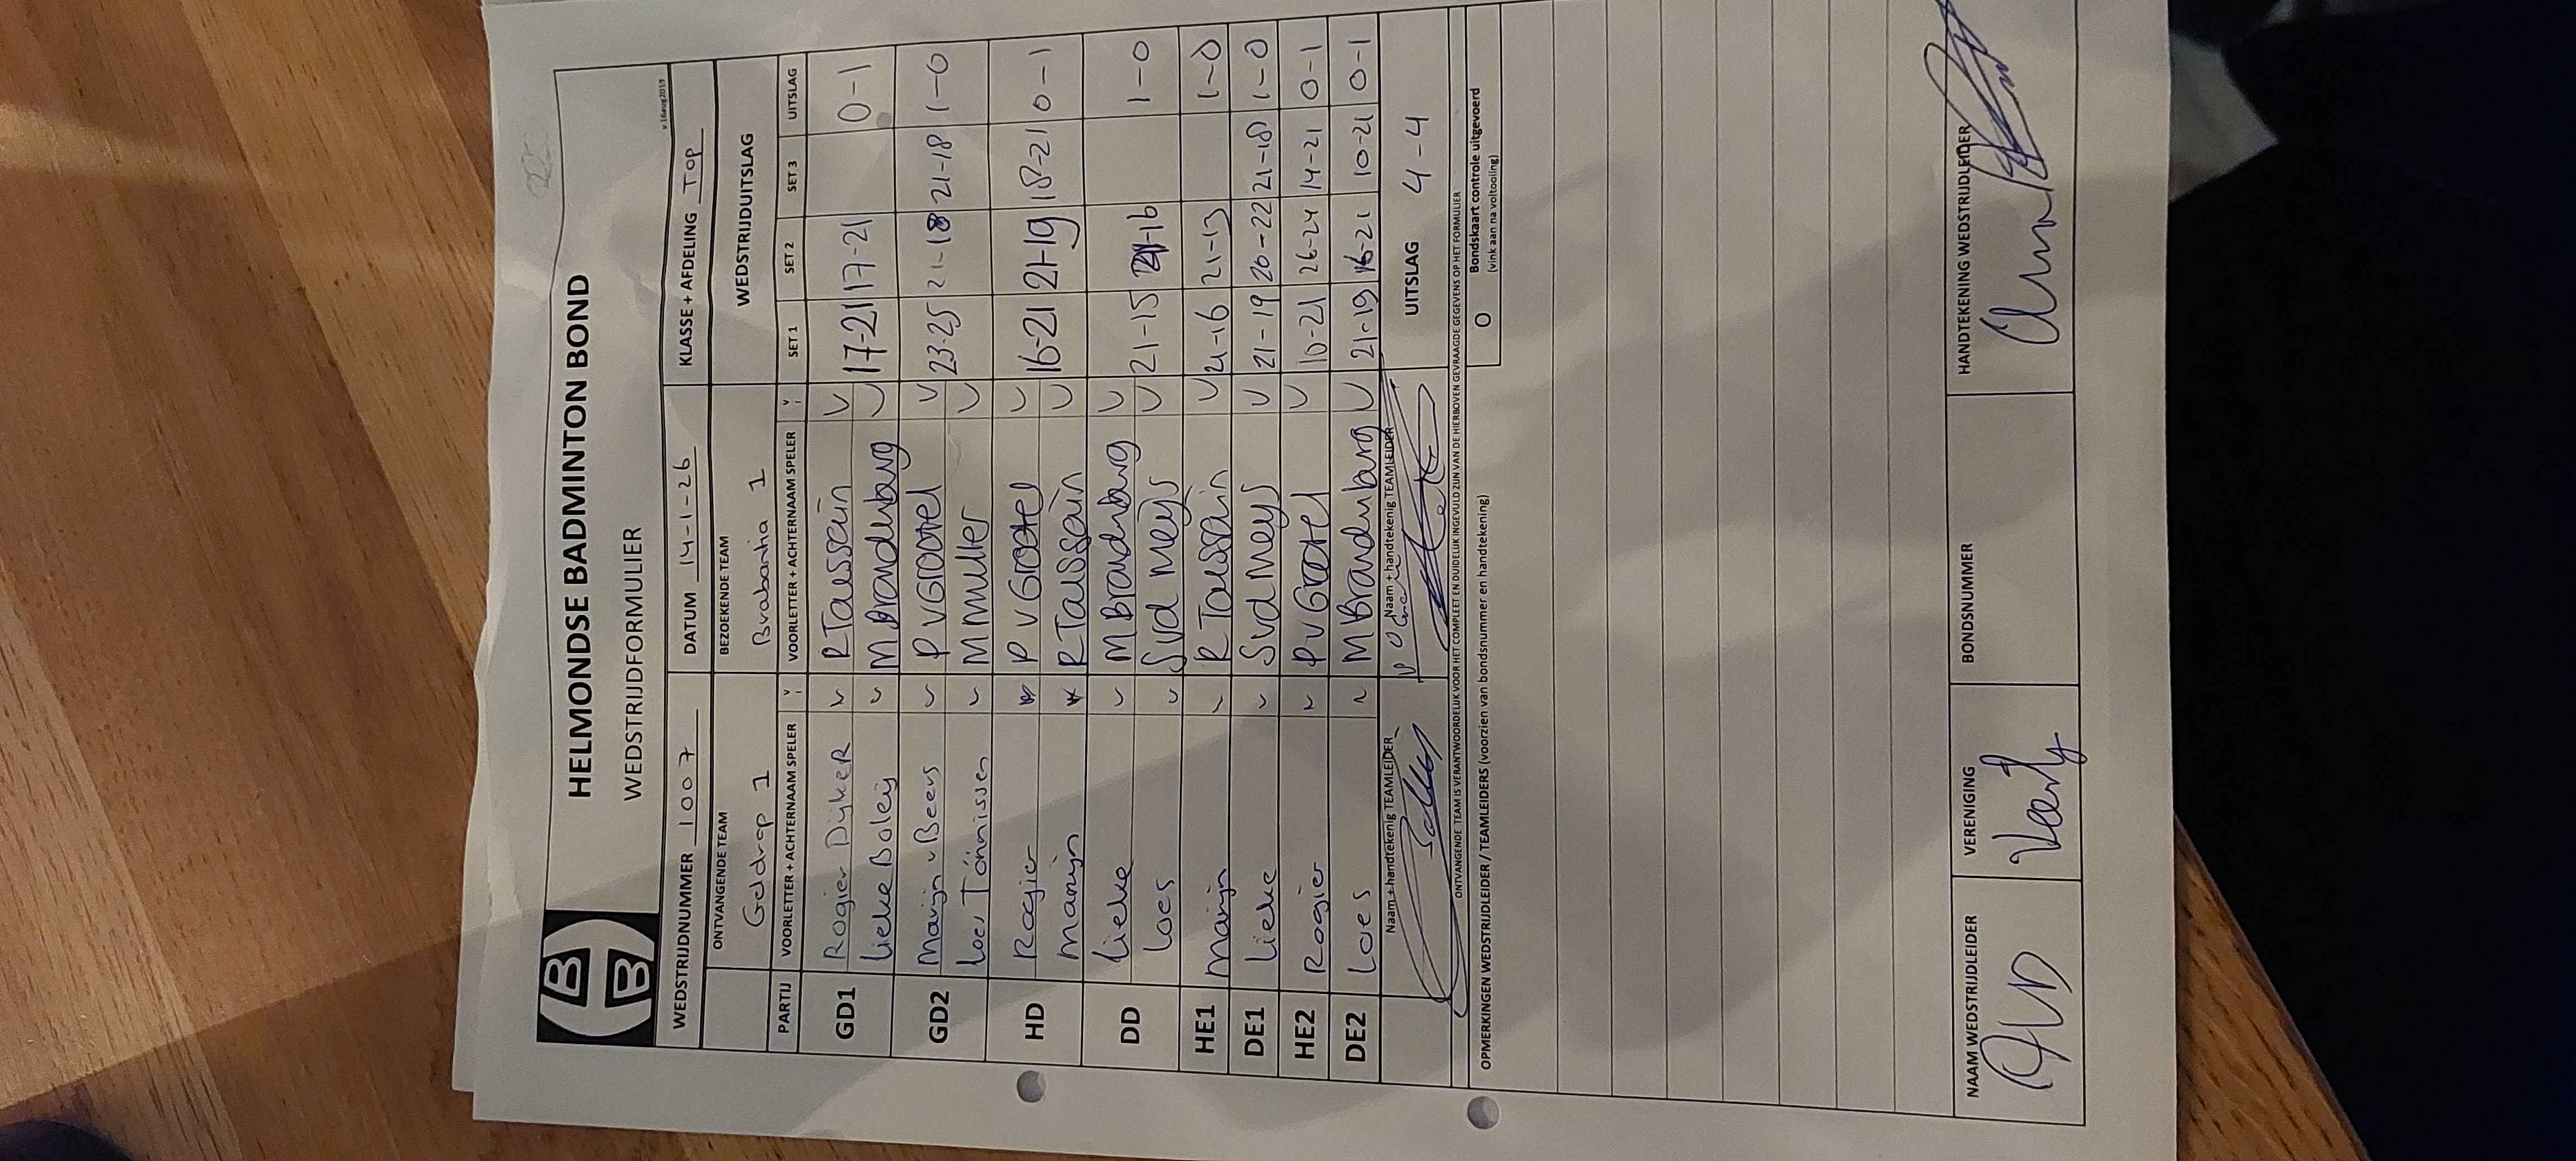 HELMONDSE BADMINTON BOND
WEDSTRIJDFORMULIER
v.16aug2019
WEDSTRIJDNUMMER 1007 DATUM 14-1-26 KLASSE + AFDELING Top
ONTVANGENDE TEAM BEZOEKENDE TEAM WEDSTRIJDUITSLAG
Geldrop 1 Brabantia 1
PARTIJ VOORLETTER + ACHTERNAAM SPELER V VOORLETTER + ACHTERNAAM SPELER V SET 1 SET 2 SET 3 UITSLAG
GD1 Rogier Dijker R Taussain 17-21 17-21 0-1
Lieke Boleij M Brandenburg
GD2 Marijn v Beers P v Grootel 23-25 21-18 21-18 1-0
Loes Tönnissen M muller
HD Rogier P v Grootel 16-21 21-19 18-21 0-1
Marijn R Taussain
DD Lieke M Brandenburg 21-15 21-16 1-0
Loes S vd Meijs
HE1 Marijn R Taussain 21-16 21-13 1-0
DE1 Lieke S vd Meijs 21-19 20-22 21-18 1-0
HE2 Rogier P v Grootel 10-21 26-24 14-21 0-1
DE2 Loes M Brandenburg 21-19 16-21 10-21 0-1
Naam + handtekenig TEAMLEIDER Naam + handtekenig TEAMLEIDER UITSLAG 4-4
ONTVANGENDE TEAM IS VERANTWOORDELIJK VOOR HET COMPLEET EN DUIDELIJK INGEVULD ZIJN VAN DE HIERBOVEN GEVRAAGDE GEGEVENS OP HET FORMULIER
OPMERKINGEN WEDSTRIJDLEIDER / TEAMLEIDERS (voorzien van bondsnummer en handtekening) O Bondskaart controle uitgevoerd
(vink aan na voltooiing)
NAAM WEDSTRIJDLEIDER VERENIGING BONDSNUMMER HANDTEKENING WEDSTRIJDLEIDER